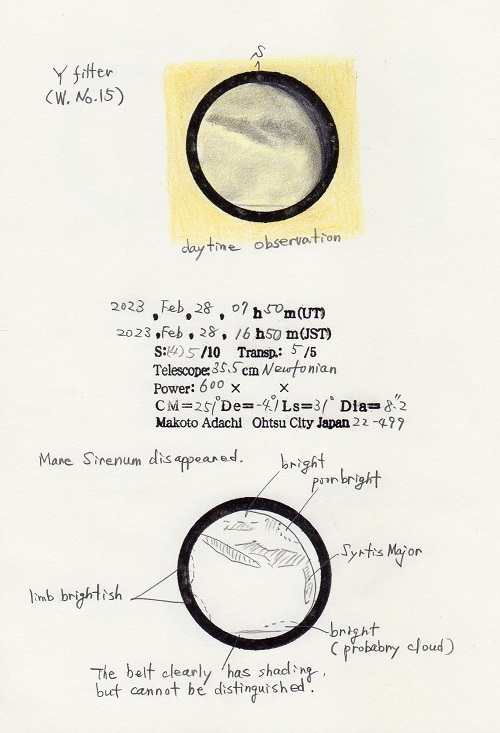 S
Y filter
(W. No.15)
daytime observation
2023, Feb, 28, 07h50m(UT)
2023, Feb, 28, 16h50m(JST)
S:(4)5/10 Transp.: 5/5
Telescope: 35.5cm Newtonian
Power: 600× ×
CM=251° De=-4.1° Ls=31° Dia=8."2
Makoto Adachi Ohtsu City Japan 22-499
Mare Sirenum disappeared.
bright
poor bright
Syrtis Major
limb brightish
bright
(probabry cloud)
The belt clearly has shading,
but cannot be distinguished.